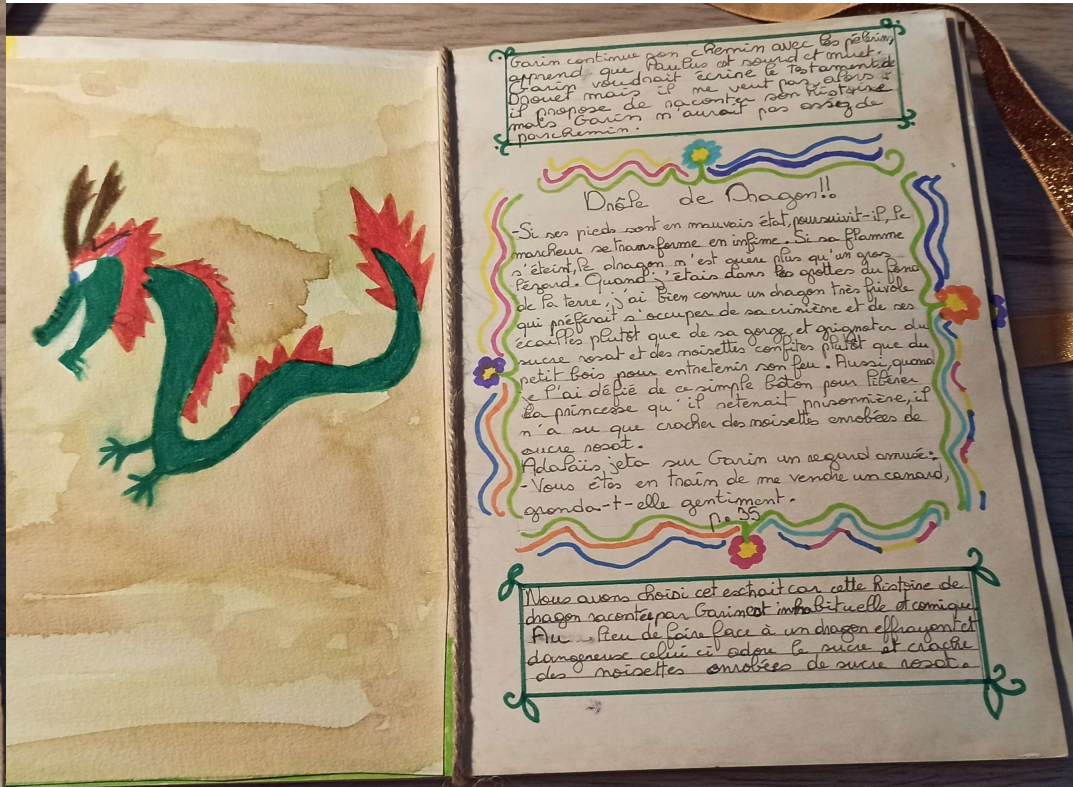 Garin continue son chemin avec les pèlerins,
apprend que Paulus est sourd et muet.
Garin voudrait écrire le Testament de
Drouet mais il ne veut pas, alors
il propose de raconter son histoire
mais Garin n'aurait pas assez de
parchemin.
Drôle de Dragon!!
-Si ses pieds sont en mauvais état, poursuivit-il, le
marcheur se transforme en infirme. Si sa flamme
s'éteint, le dragon n'est guère plus qu'un gros
lézard. Quand j'étais dans les grottes du fond
de la terre, j'ai bien connu un dragon très frivole
qui préférait s'occuper de sa crinière et de ses
écailles plutôt que de sa gorge, et grignoter du
sucre rosat et des noisettes confites plutôt que du
petit bois pour entretenir son feu. Aussi, quand
je l'ai défié de ce simple bâton pour libérer
la princesse qu'il retenait prisonnière, il
n'a su que cracher des noisettes enrobées de
sucre rosat.
Adalaïs jeta sur Garin un regard amusé:
-Vous êtes en train de me vendre un canard,
gronda-t-elle gentiment.
p. 35
Nous avons choidi cet extrait car cette histoire de
dragon racontée par Garin est inhabituelle et comique
Au lieu de faire face à un dragon effrayant et
dangereuse celui ci adore le sucre et crache
des noisettes enrobées de sucre rosat.